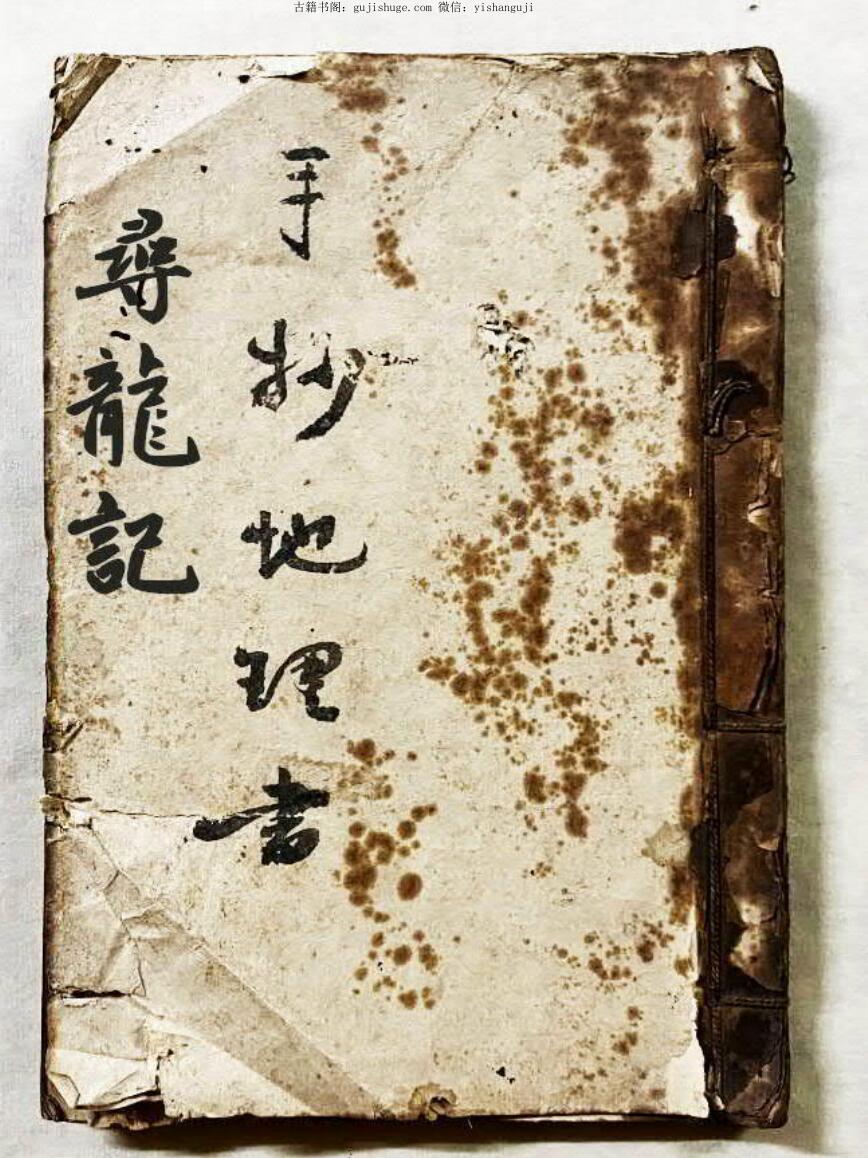 古籍书阁：gujishuge.com 微信：yishanguji
手抄地理书
尋龍記